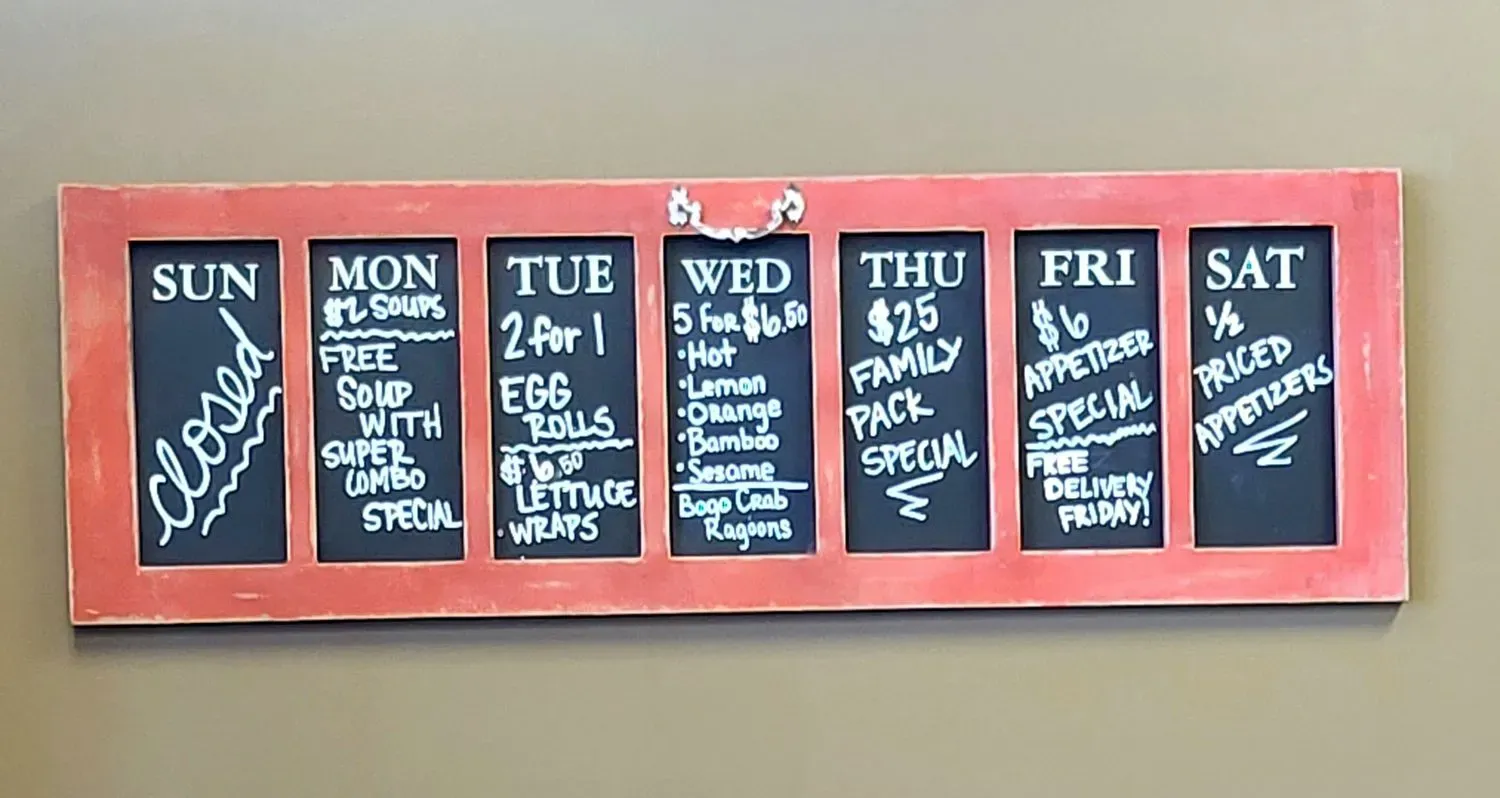 SUN
closed
MON
$2 SOUPS
FREE
SOUP
WITH
SUPER
COMBO
SPECIAL
TUE
2 for 1
EGG
ROLLS
$6.50
LETTUCE
WRAPS
WED
5 FOR $6.50
•Hot
•Lemon
•Orange
•Bamboo
•Sesame
Bogo Crab
Ragoons
THU
$25
FAMILY
PACK
SPECIAL
FRI
$6
APPETIZER
SPECIAL
FREE
DELIVERY
FRIDAY!
SAT
½
PRICED
APPETIZERS